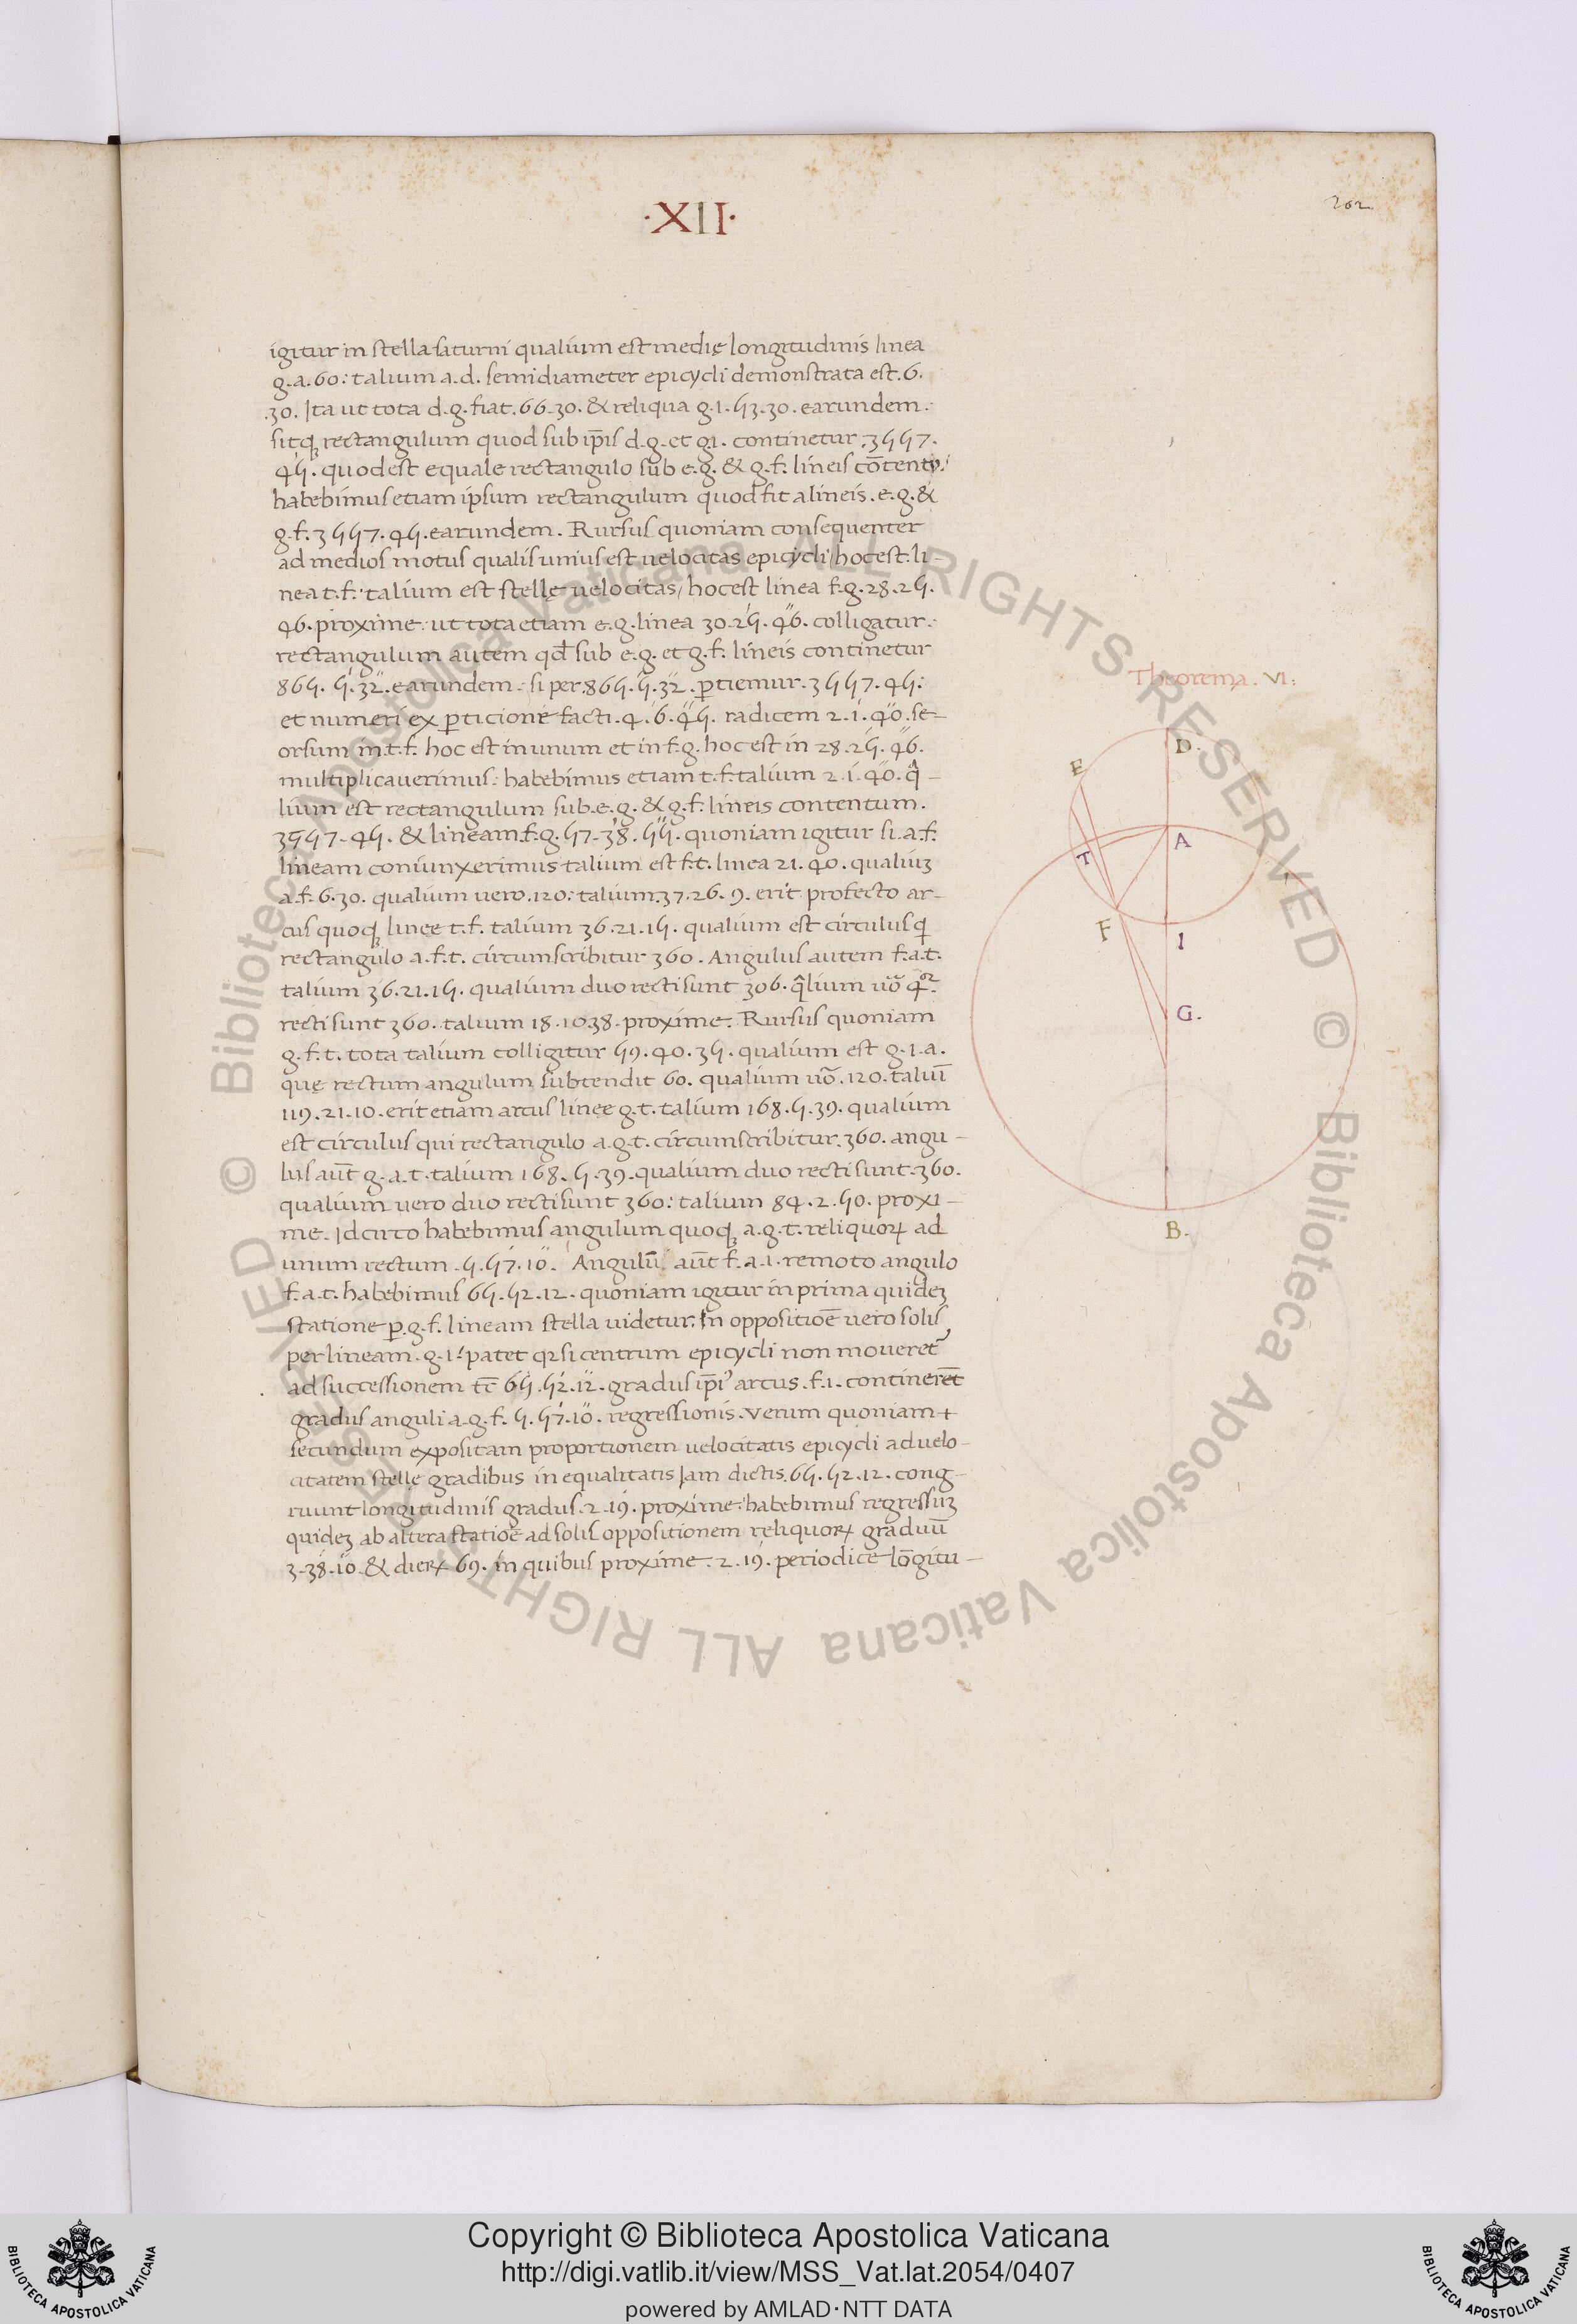 ·XII·
202
igitur in stella saturni qualium est medię longitudinis linea
g.a.60: talium a.d. semidiameter epicycli demonstrata est.6.
.30. Ita ut tota d.g. fiat.66.30. & reliqua g.1.53.30. earundem.
sitqꝫ rectangulum quod sub ip̄is d.g. et g.1. continetur.3557.
45. quod est equale rectangulo sub e.g. & g.f. lineis cōtento.
habebimus etiam ipsum rectangulum quod fit a lineis .e.g. &
g.f. 3557.45. earundem. Rursus quoniam consequenter
ad medios motus qualis unius est uelocitas epicycli/hoc est.li-
nea t.f. talium est stellę uelocitas/ hoc est linea f.g.28.25.
46. proxime. ut tota etiam e.g. linea 30.25.46. colligatur.
rectangulum autem qd̄ sub e.g. et g.f. lineis continetur
865. 5.32. earundem. si per.865.5.32. ꝑtiemur. 3557.45:
et numeri ex ꝑticione facti.4.6.45. radicem 2.1.40. se-
orsum in.t.f. hoc est in unum et in f.g. hoc est in 28.25.46.
multiplicauerimus: habebimus etiam t.f. talium 2.1.40. q̄-
lium est rectangulum sub.e.g. & g.f. lineis contentum.
3557.45. & lineam.f.g.57.38.55. quoniam igitur si.a.f.
lineam coniunxerimus talium est f.t. linea 21.40. qualiuꝫ
a.f.6.30. qualium uero.120: talium.37.26.9. erit profecto ar-
cus quoqꝫ linee t.f. talium 36.21.15. qualium est circulus q̄
rectangulo a.f.t. circumscribitur 360. Angulus autem f.a.t.
talium 36.21.15. qualium duo recti sunt 306. q̄lium uō q̄ꝛ
recti sunt 360. talium 18.10.38. proxime. Rursus quoniam
g.f.t. tota talium colligitur 59.40.35. qualium est g.1.a.
quę rectum angulum subtendit 60. qualium uō.120. taluī
119.21.10. erit etiam arcus linee g.t. talium 168.5.39. qualium
est circulus qui rectangulo a.g.t. circumscribitur.360. angu-
lus aūt g.a.t. talium 168.5.39. qualium duo recti sunt.360.
qualium uero duo recti sunt 360: talium 84.2.50. proxi-
me. Idcirco habebimus angulum quoqꝫ a.g.t. reliquoꝝ ad
unum rectum .5.57.10. Angulū aūt f.a.1. remoto angulo
f.a.t. habebimus 65.52.12. quoniam igitur in prima quideꝫ
statione ꝑ.g.f. lineam stella uidetur. In oppositiōe uero solis
per lineam.g.1. patet ꝙ si centrum epicycli non moueret᷑
ad successionem tc̄ 65.52.12. gradus ip̄i᾿ arcus.f.1. contineret
gradus anguli a.g.f. 5.57.10. regressionis. Verum quoniam +
secundum expositam proportionem uelocitatis epicycli ad uelo-
citatem stellę gradibus inequalitatis Iam dictis.65.52.12. cong-
ruunt longitudinis gradus.2.19. proxime: habebimus regressuꝫ
quideꝫ ab altera statiōe ad solis oppositionem reliquoꝝ graduū
3.38.10. & dierꝝ 69. in quibus proxime.2.19. periodice lōgitu-
Theorema. VI:
D.
E
A
T
F
I
G.
B.
© Biblioteca Apostolica Vaticana ALL RIGHTS RESERVED © Biblioteca Apostolica Vaticana ALL RIGHTS RESERVED
BIBLIOTECA APOSTOLICA VATICANA
Copyright © Biblioteca Apostolica Vaticana
http://digi.vatlib.it/view/MSS_Vat.lat.2054/0407
powered by AMLAD·NTT DATA
BIBLIOTECA APOSTOLICA VATICANA